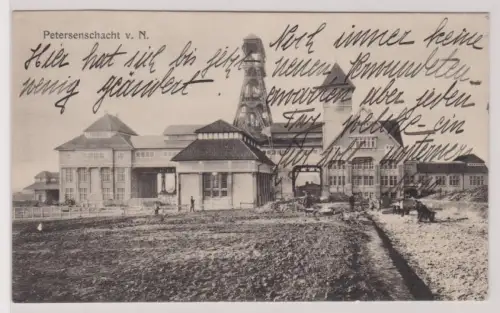 Petersenschacht v. N.
Hier hat sich bis jetzt
wenig geändert.
Noch immer keine
neuen Verwundeten
erwarten aber jeden
Tag welche ein